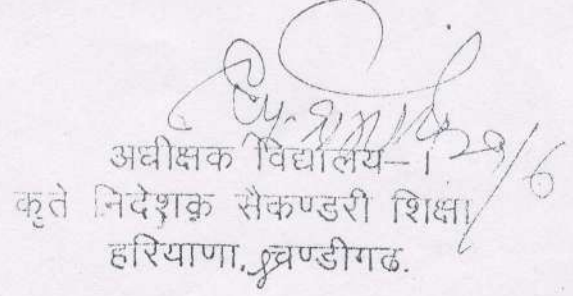 29/6
अधीक्षक विद्यालय–।
कृते निदेशक सैकण्डरी शिक्षा
हरियाणा, चण्डीगढ.